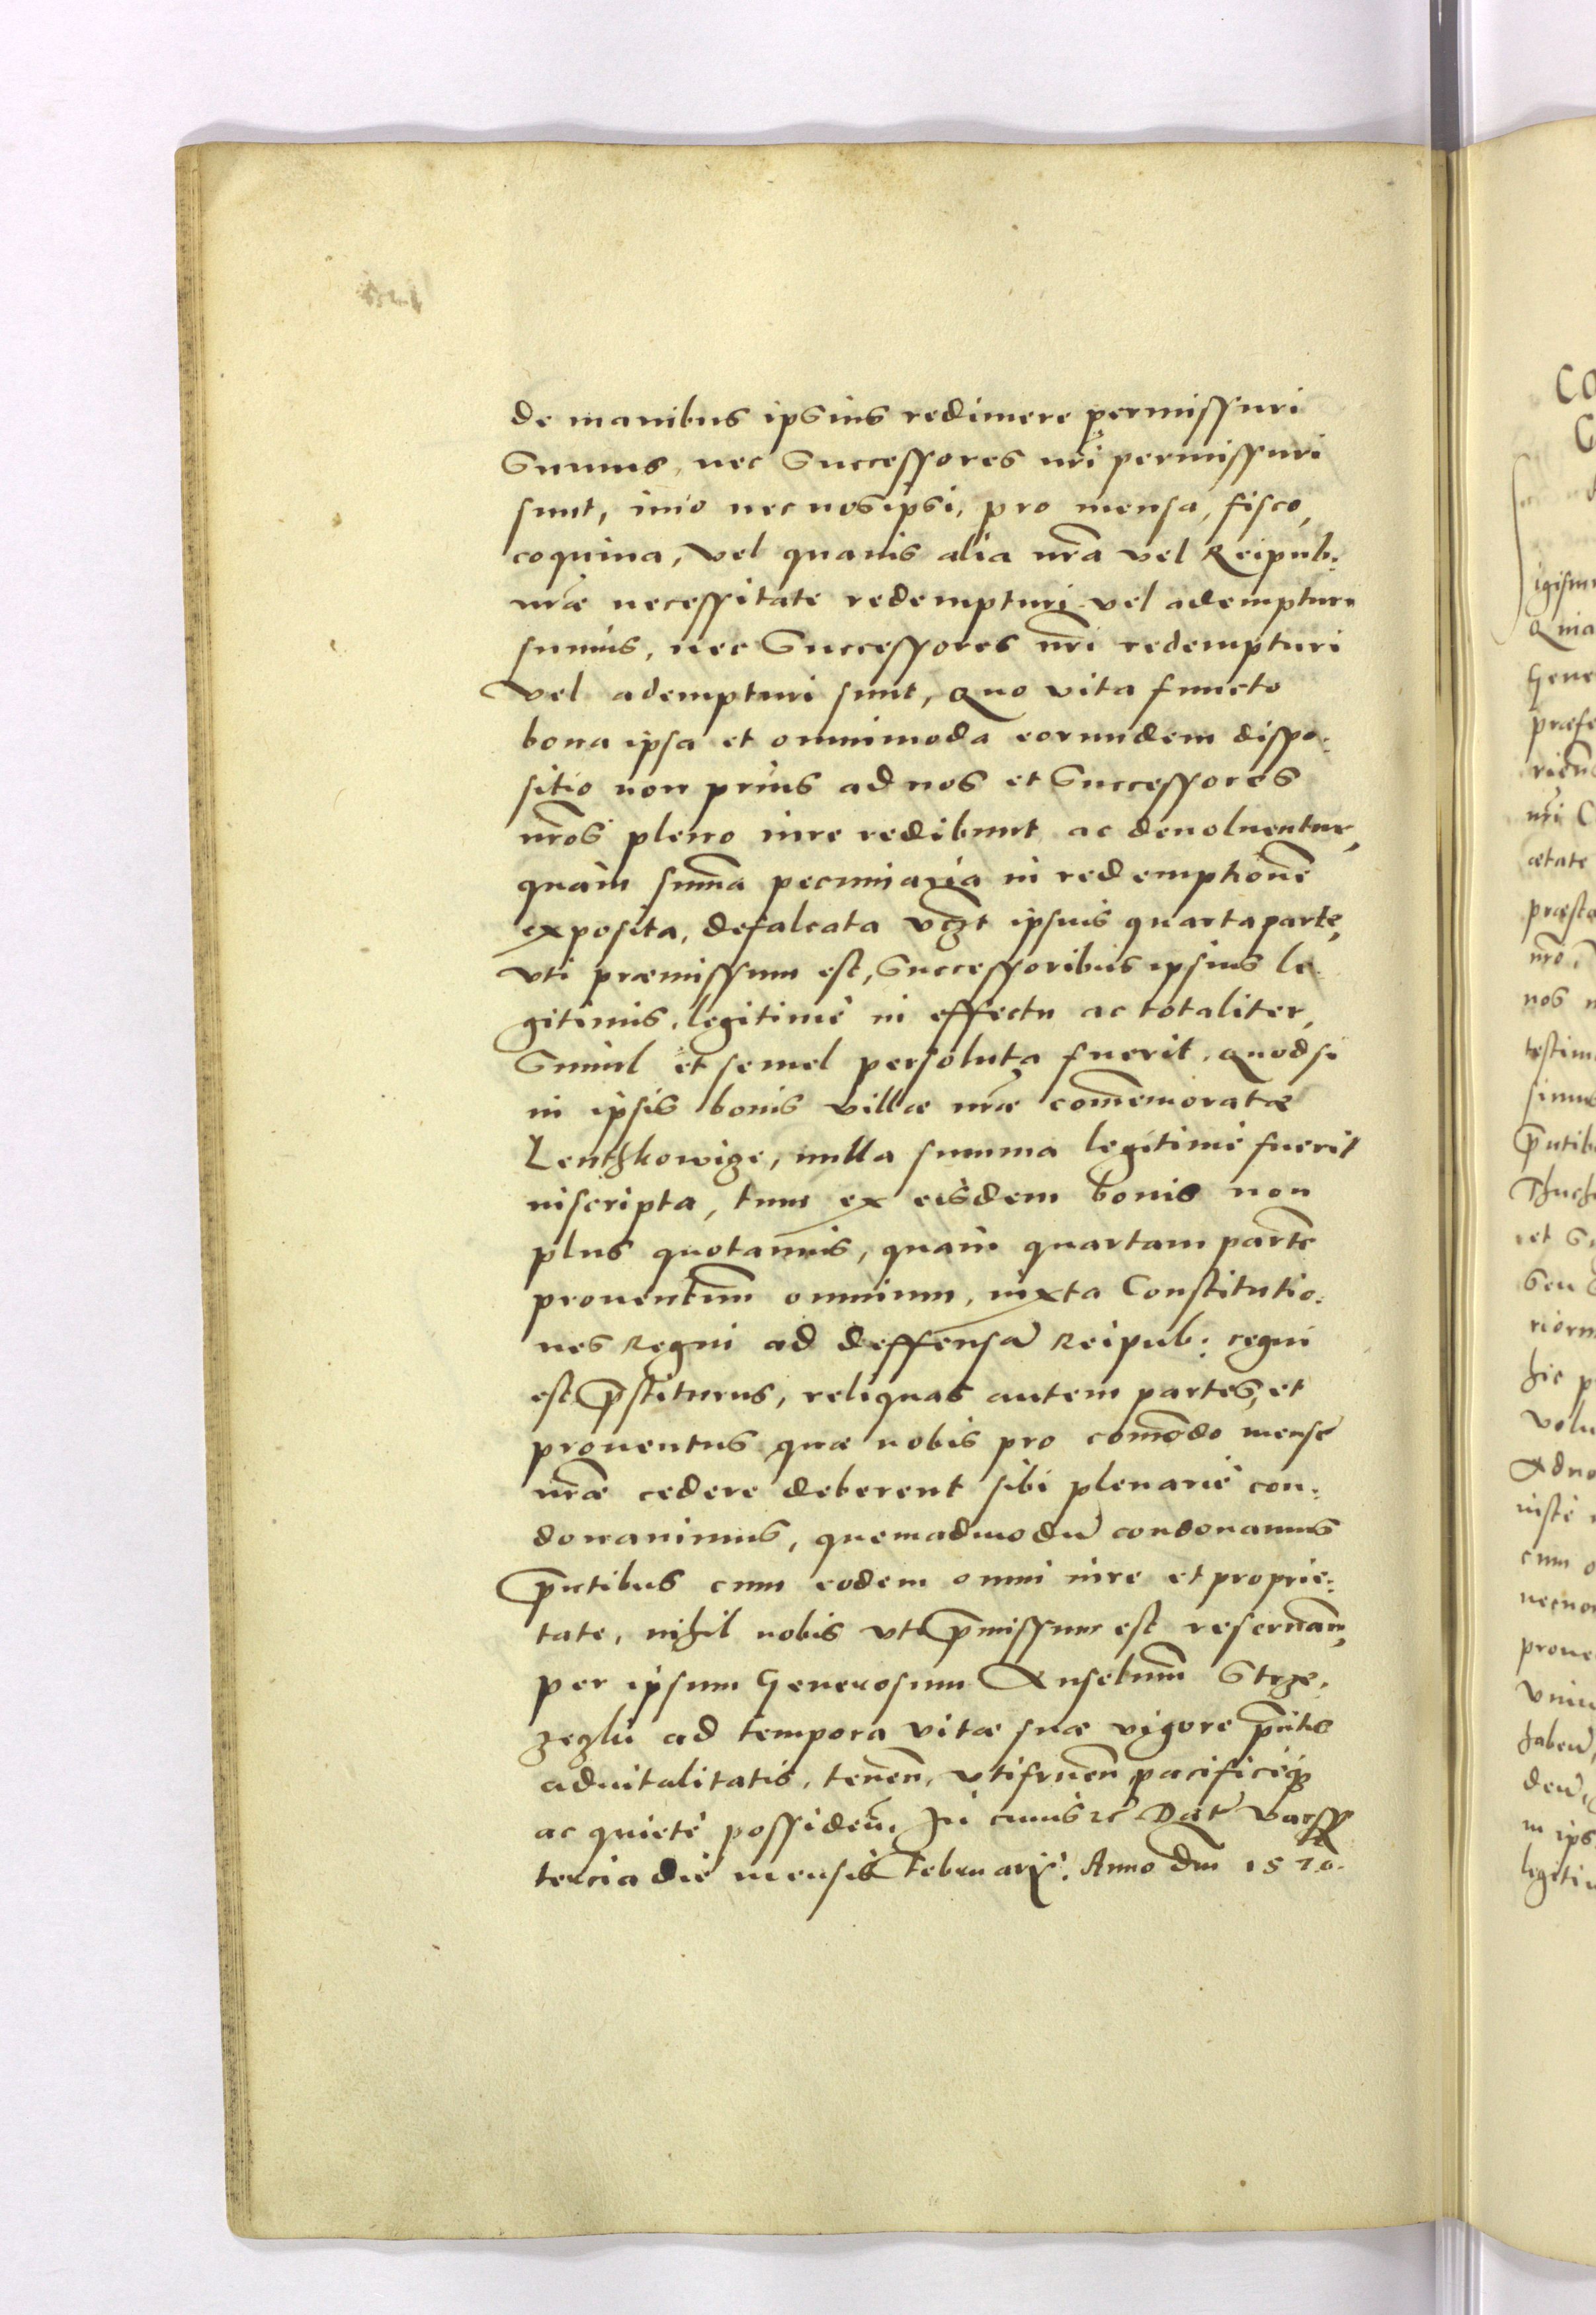 de manibus ipsius redimere permissuri
Sumus, nec Successores nr̃i permissuri
sunt, imo nec nos ipsi, pro mensa, fisco,
coquina, vel quauis alia nr̃a vel Reipub:
nr̃æ necessitate redempturi vel adempturi
sumus, nec Successores nr̃i redempturi
vel adempturi sunt, quo vita functo
bona ipsa et omnimoda eorundem dispo:
sitio non prius ad nos et Successores
nr̃os pleno iure redibunt ac deuoluentur,
quàm sum̃a pecuniaria in redemptionẽ
exposita, defalcata vczt ipsius quarta parte,
vti præmissum est, Successoribus ipsius le:
gitimis, legitimè in effectu ac totaliter,
Simul et semel persoluta fuerit, quod si
in ipsis bonis villæ nr̃æ com̃emoratæ
Lentzkowize, nulla summa legitimè fuerit
inscripta, tum ex eisdem bonis non
plus quotannis, quàm quartam partẽ
prouentuum omnium, iuxta Constitutio:
nes Regni ad deffensã Reipub: regni
est p̃stiturus, reliquas autem partes, et
prouentus quæ nobis pro com̃odo mensę
nr̃æ cedere deberent sibi plenariè con:
donauimus, quemadmodũ condonamus
p̃ntibus cum eodem omni iure et proprie:
tate, nihil nobis vti p̃missum est reseruan̄,
per ipsum Generosum Anselmum Strze:
zezlii ad tempora vitæ suæ vigore p̃ntis
aduitalitatis, tenen̄, vtifruen̄ pacificèq₃
ac quietè possiden̄. In cuius rẽ Dat̃ Varss
tercia die mensis Februarij. Anno dñi 1570.